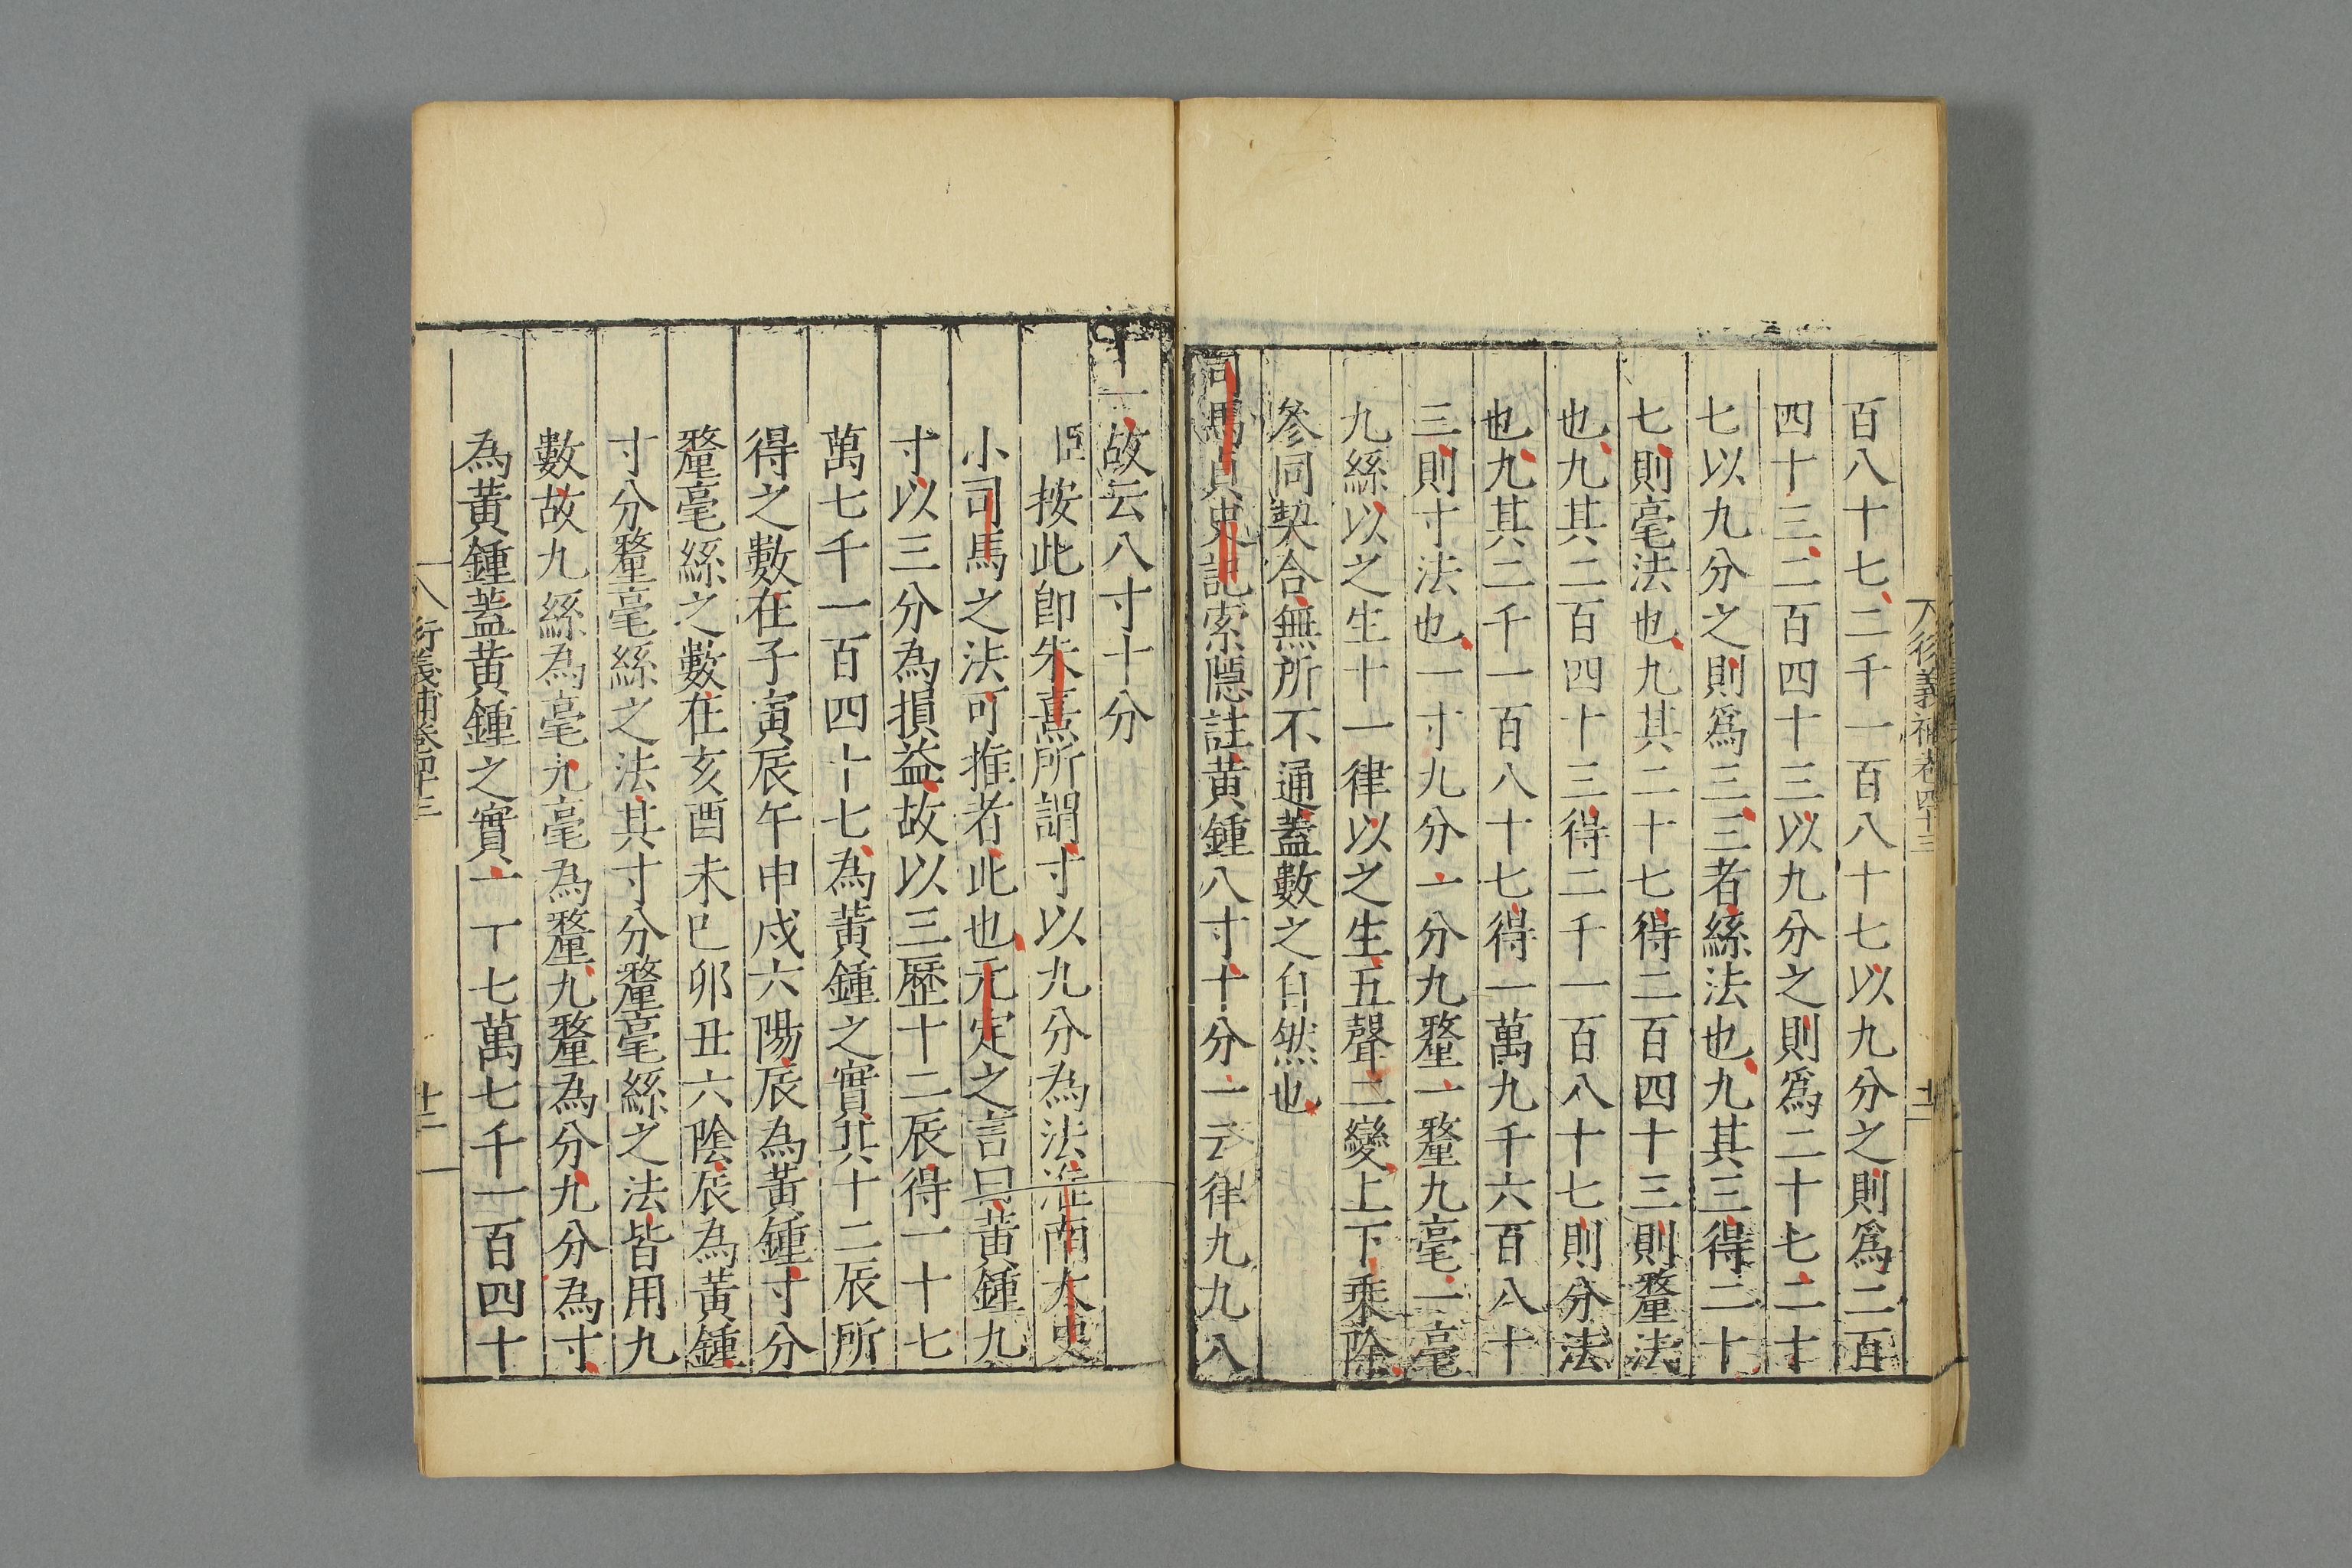 百八十七二千一百八十七以九分之則爲二百
四十三二百四十三以九分之則爲二十七二十
七以九分之則爲三三者絲法也九其三得二十
七則毫法也九其二十七得二百四十三則釐法
也九其二百四十三得二千一百八十七則分法
也九其二千一百八十七得一萬九千六百八十
三則寸法也一寸九分一分九釐一釐九毫一毫
九絲以之生十一律以之生五聲二變上下乘除
參同契合無所不通蓋數之自然也
司馬貞史記索隱註黃鍾八寸十分一云律九九八
十一故云八寸十分
臣按此即朱熹所謂寸以九分為法淮南太史
小司馬之法可推者此也元定之言曰黃鍾九
寸以三分為損益故以三歷十二辰得一十七
萬七千一百四十七為黃鍾之實其十二辰所
得之數在子寅辰午申戌六陽辰為黃鍾寸分
釐毫絲之數在亥酉未巳卯丑六陰辰為黃鍾
寸分釐毫絲之法其寸分釐毫絲之法皆用九
數故九絲為毫九毫為釐九釐為分九分為寸
為黃鍾蓋黃鍾之實一丁七萬七千一百四十
衍義補卷四十三
十二